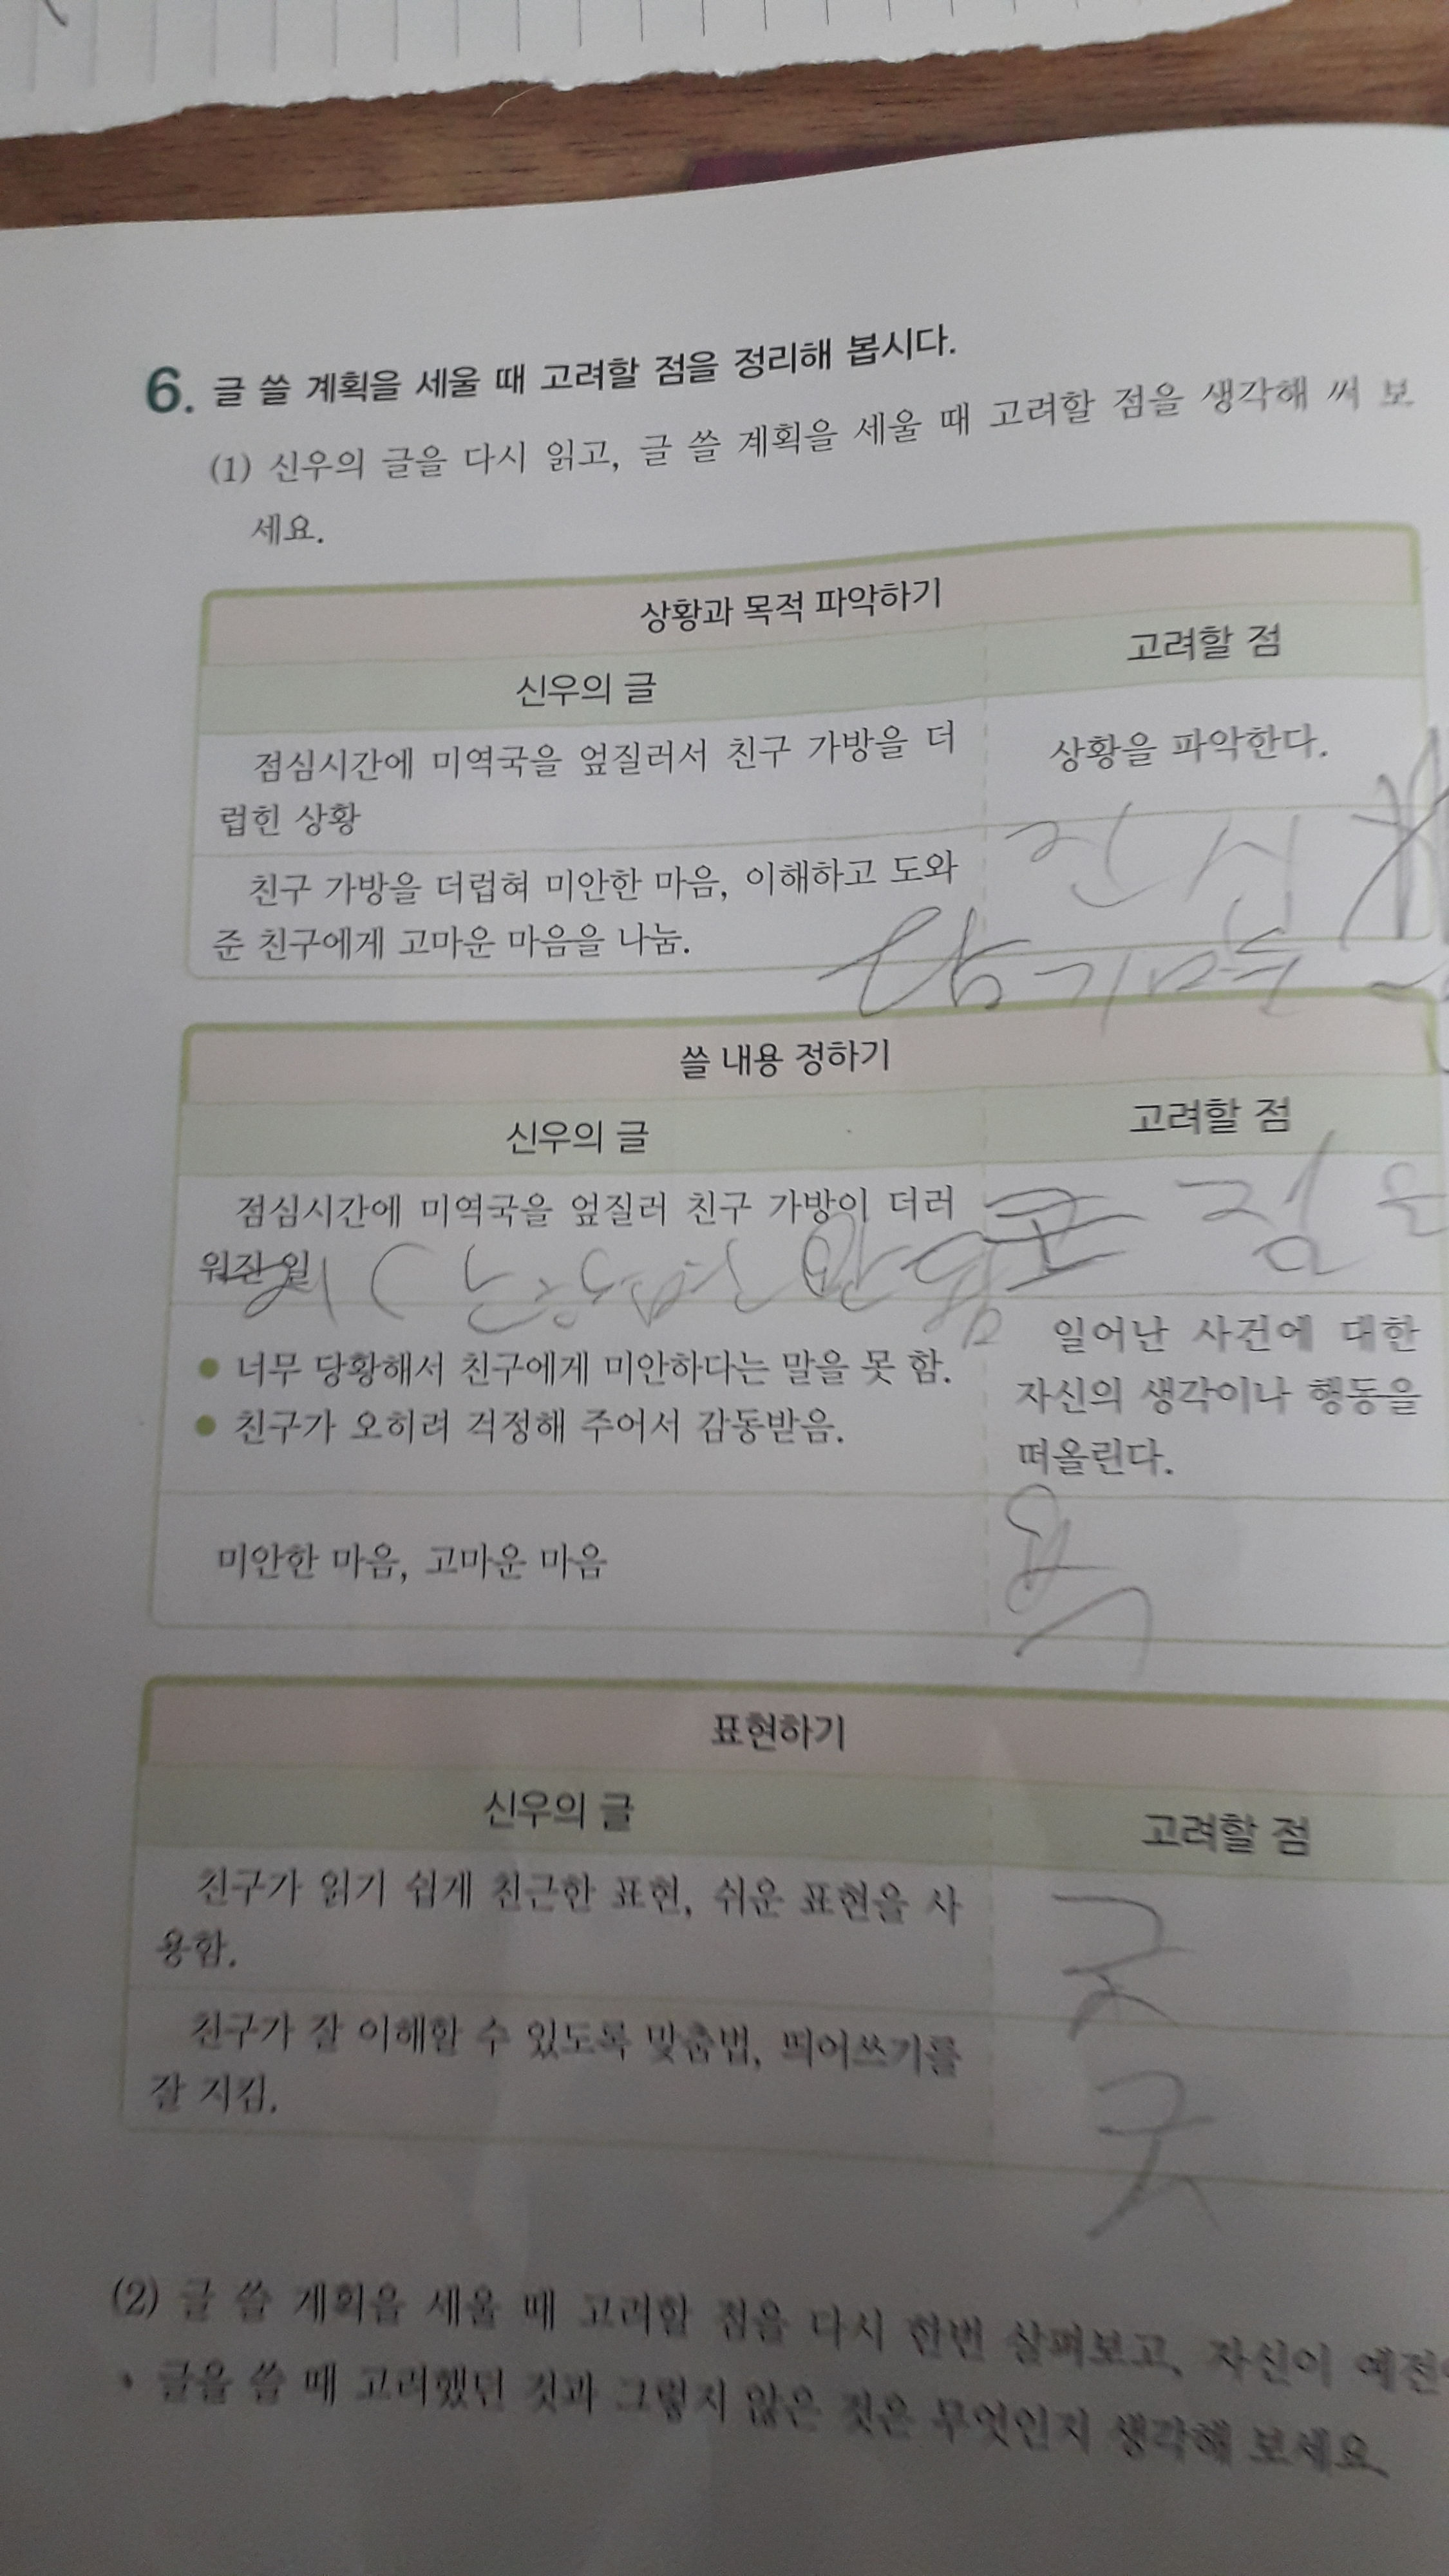 6. 글 쓸 계획을 세울 때 고려할 점을 정리해 봅시다.
(1) 신우의 글을 다시 읽고, 글 쓸 계획을 세울 때 고려할 점을 생각해 써 보
세요.
상황과 목적 파악하기
신우의 글
고려할 점
점심시간에 미역국을 엎질러서 친구 가방을 더
럽힌 상황
상황을 파악한다.
친구 가방을 더럽혀 미안한 마음, 이해하고 도와
준 친구에게 고마운 마음을 나눔.
쓸 내용 정하기
신우의 글
고려할 점
점심시간에 미역국을 엎질러 친구 가방이 더러
워진 일
• 너무 당황해서 친구에게 미안하다는 말을 못 함.
• 친구가 오히려 걱정해 주어서 감동받음.
일어난 사건에 대한
자신의 생각이나 행동을
떠올린다.
미안한 마음, 고마운 마음
표현하기
신우의 글
고려할 점
친구가 읽기 쉽게 친근한 표현, 쉬운 표현을 사
용함.
굿
친구가 잘 이해할 수 있도록 맞춤법, 띄어쓰기를
잘 지킴.
굿
(2) 글 쓸 계획을 세울 때 고려할 점을 다시 한번 살펴보고, 자신이 예전
글을 쓸 때 고려했던 것과 그렇지 않은 것은 무엇인지 생각해 보세요.